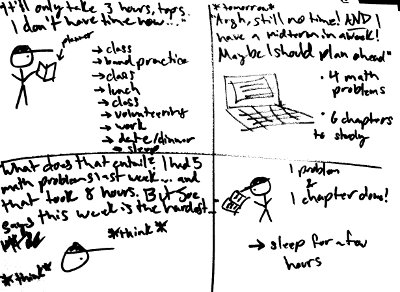 It'll only take 3 hours, tops
I don't have time now...
planner
→ class
→ band practice
→ class
→ lunch
→ class
→ volunteering
→ work
→ date/dinner
→ sleep
*tomorrow*
"Argh, still no time! AND I
have a midterm in a week!
Maybe I should plan ahead"
• 4 math
problems
• 6 chapters
to study
What does that entail? I had 5
math problems last week... and
that took 8 hours. But
says this week is the hardest...
*think*
*think*
1 problem
&
1 chapter down!
→ sleep for a few
hours